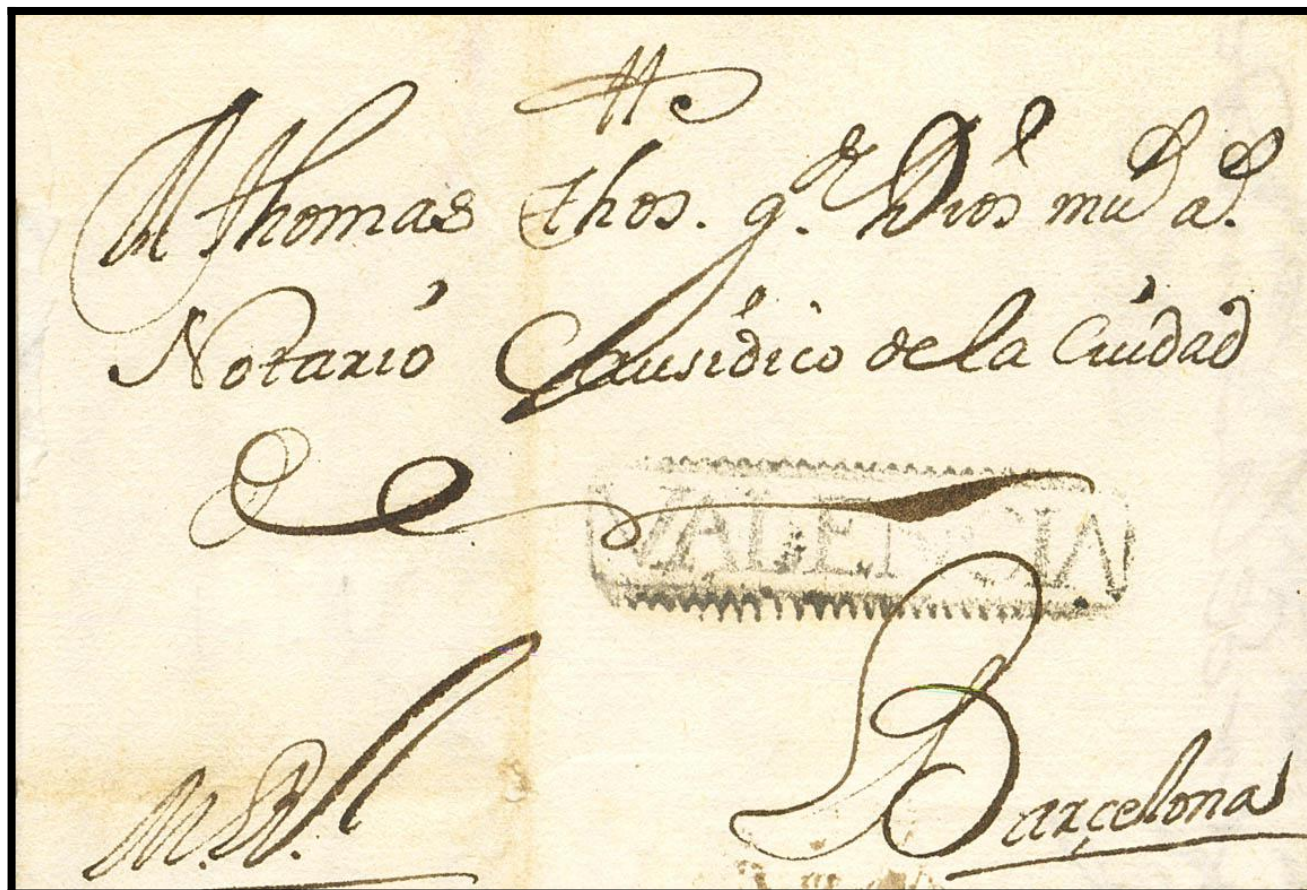 Thomas Thos. g.de Dios mu.s a.s
Notario Causidico de la Ciudad
de
VALENCIA
Barçelona